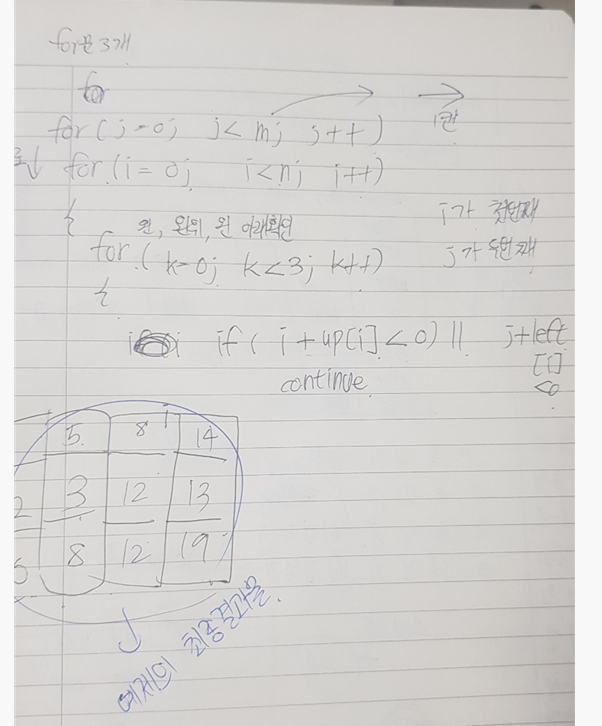 for문 3개
for
for(j=0; j<m; j++) 1칸
for(i=0; i<n; i++)
{ 왼, 왼위, 왼 아래확인 i가 첫번째
for(k=0; k<3; k++) j가 두번째
{
if( i+up[i]<0) || j+left
[i]
continue <0
5 8 14
2 3 12 13
5 8 12 19
예제의 최종결과물.